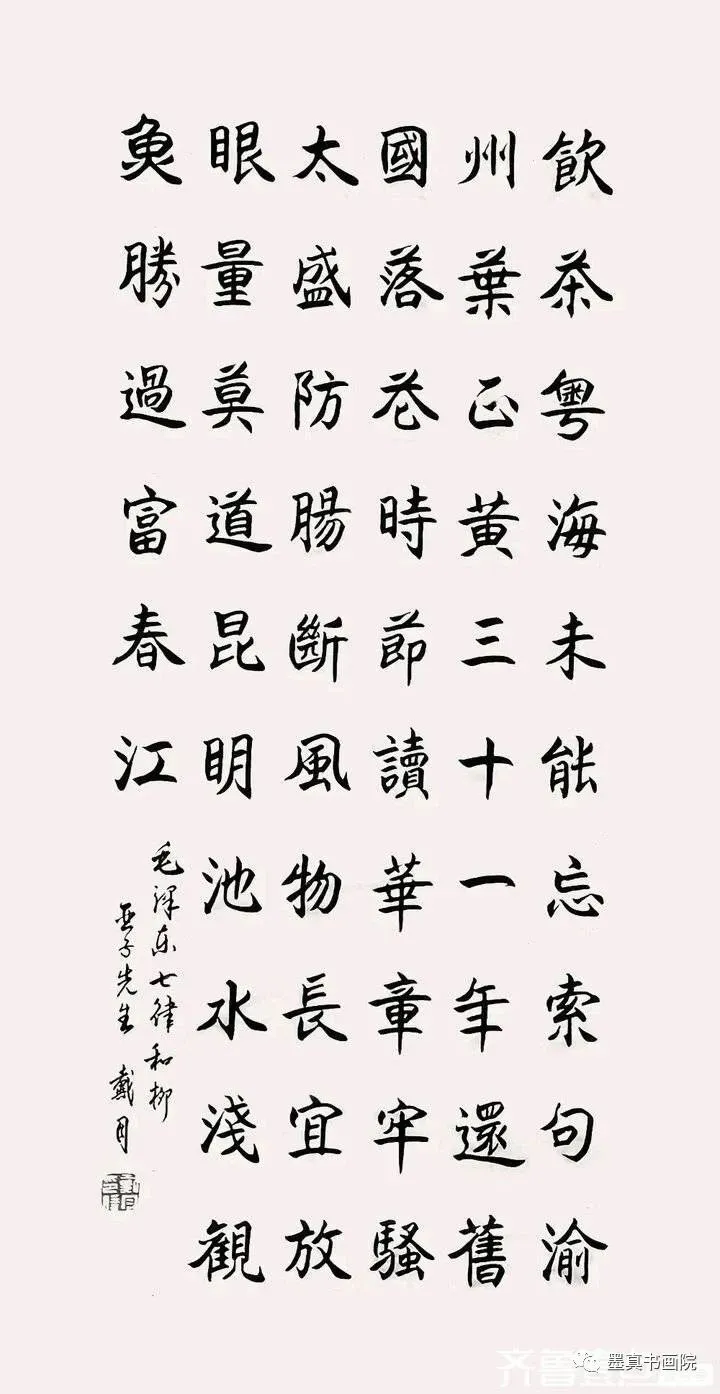 飲茶粵海未能忘索句渝
州葉正黄三十一年還舊
國落花時節讀華章牢騷
太盛防腸斷風物長宜放
眼量莫道昆明池水淺觀
魚勝過富春江
毛澤东七律和柳
亚子先生 戴月
墨真书画院